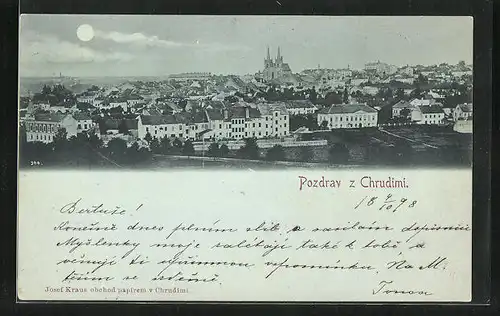 394
Pozdrav z Chrudimi.
18 9/10 98
Bertuše!
Konečně dnes plním slib a zasílám dopisnici
Myšlenky moje zalétají také k tobě a
věnuji ti upřímnou vzpomínku. Na M
těším se srdečně
Josef Kraus obchod papírem v Chrudimi.